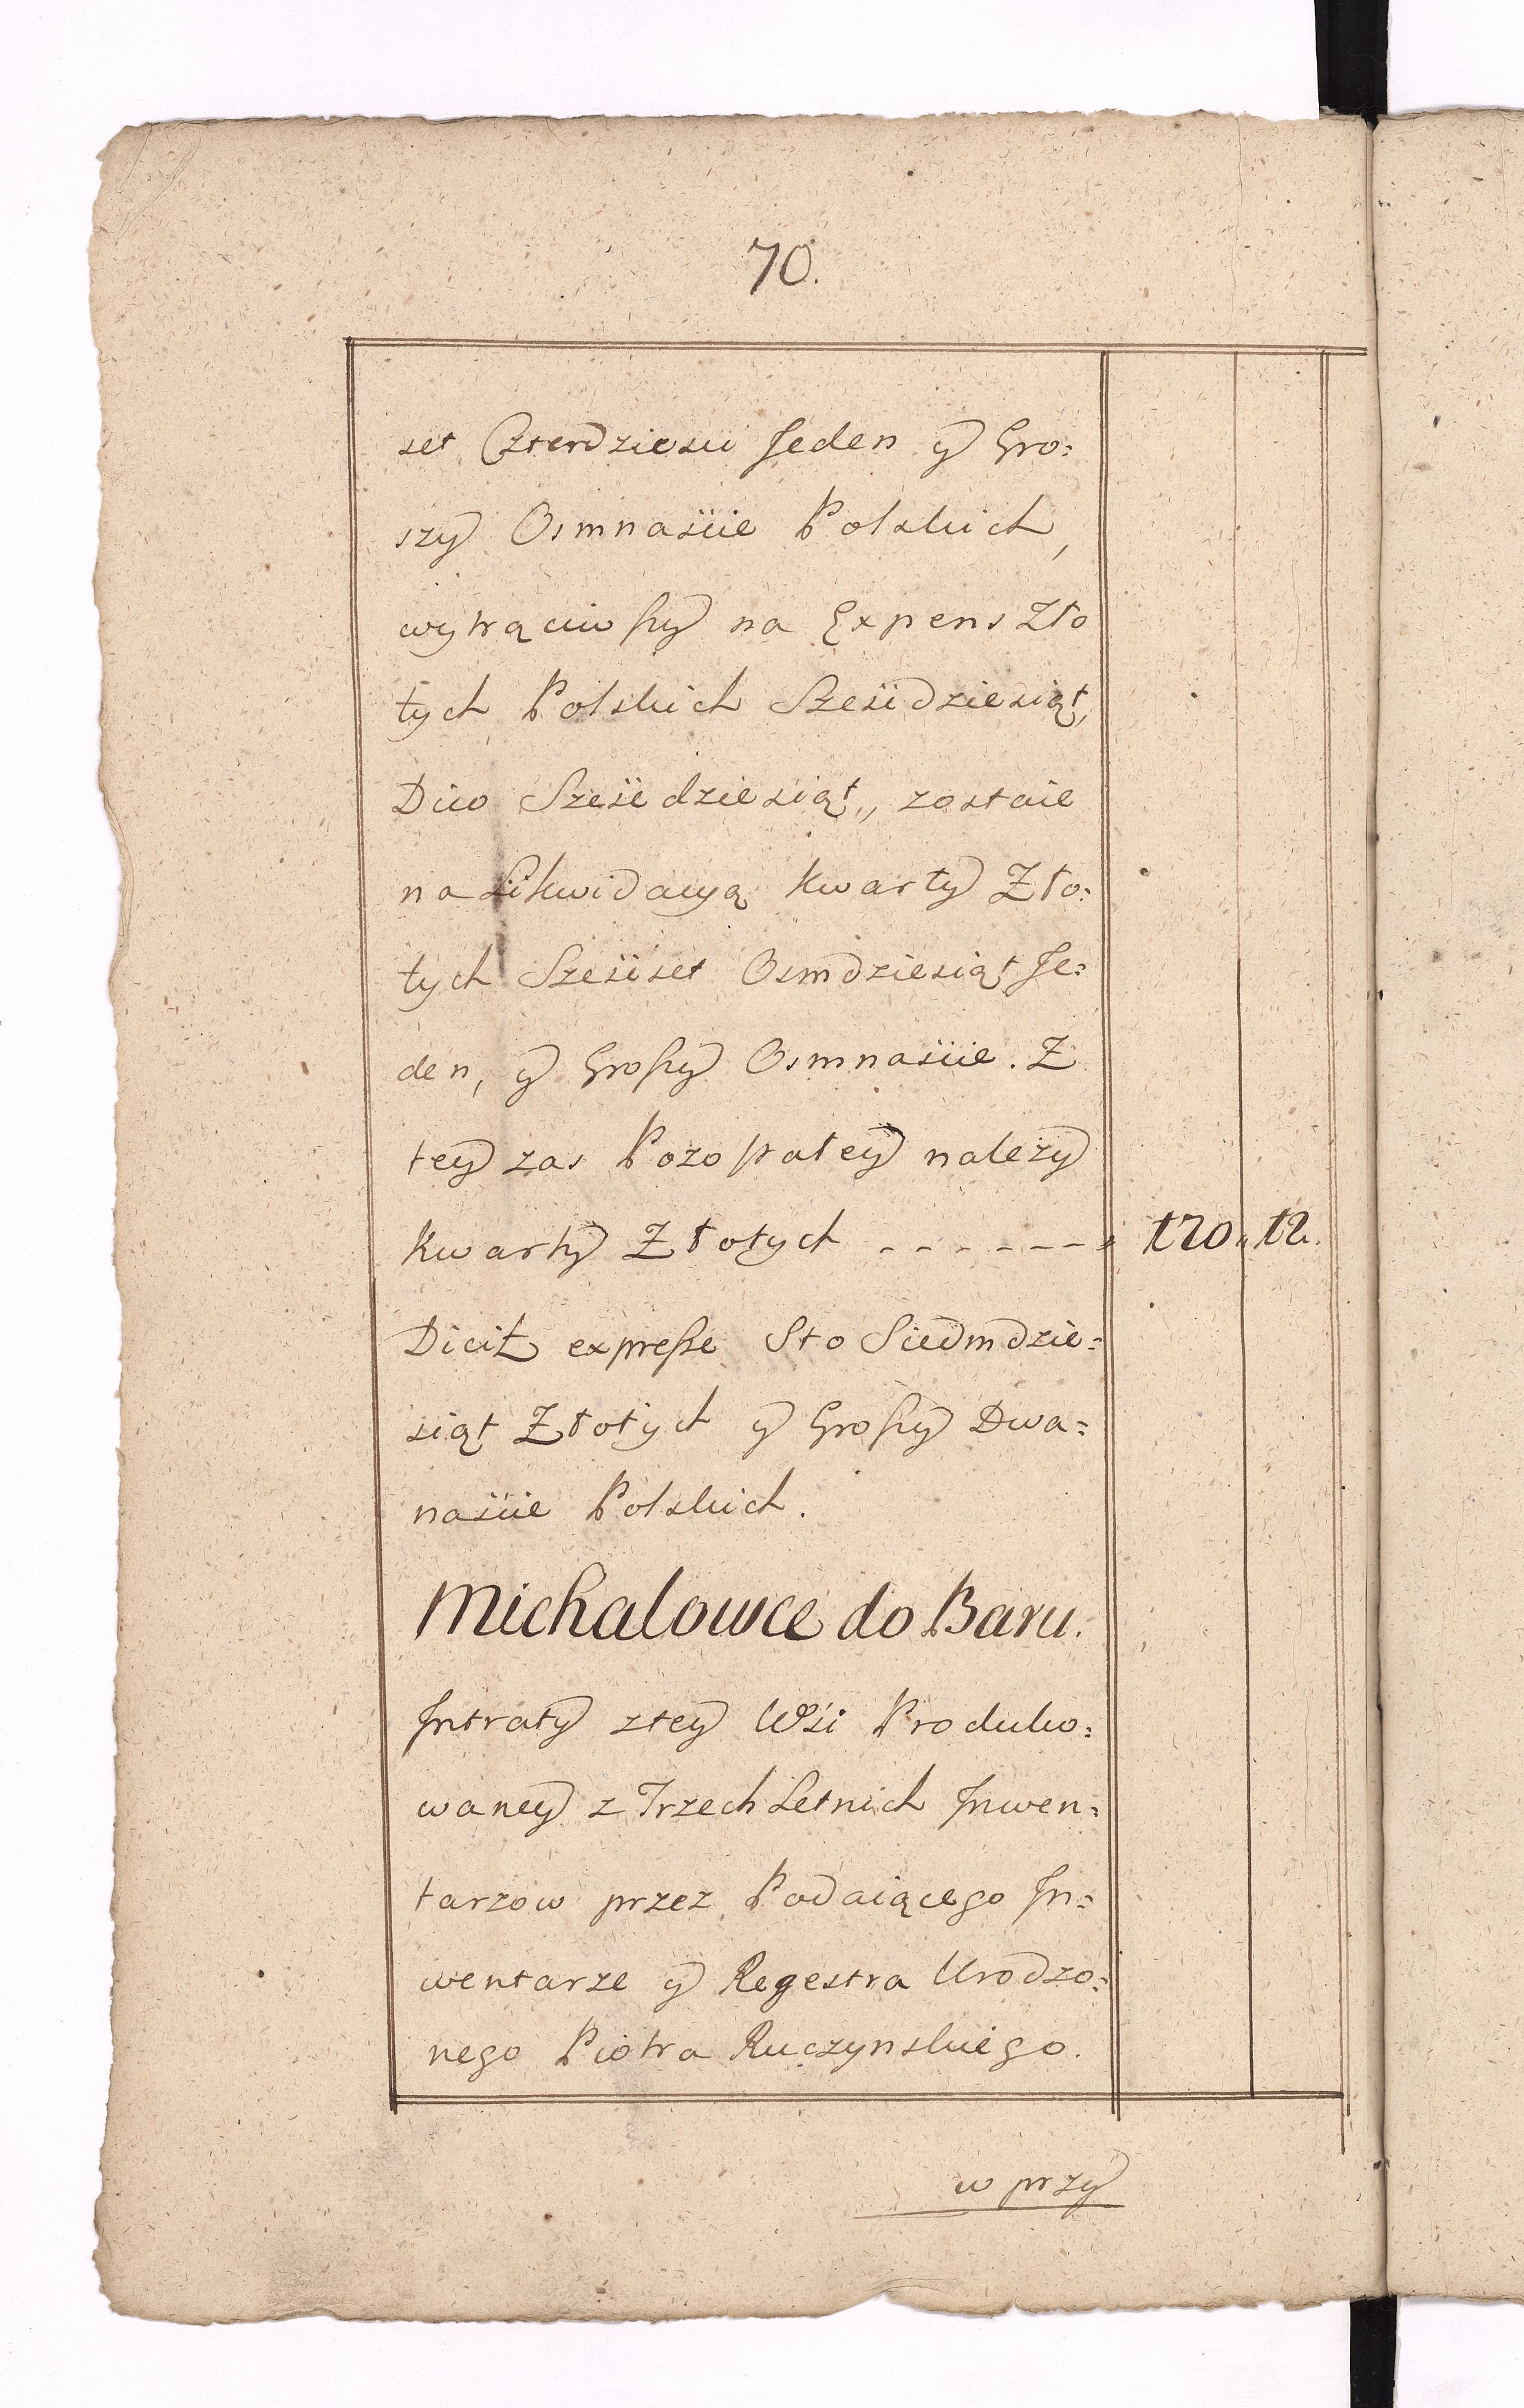 70.
set Czterdziesci Jeden y Gro=
szy Osmnascie Polskich,
wytrąciwszy na Expens Zło
tych Polskich Szescdziesiąt,
Dico Szescdziesiąt,, zostaie
na Likwidacyą Kwarty Zło=
tych Szescset Osmdziesiąt Je=
den, y Groszy Osmnascie. Z
tey zas Pozostałey należy
Kwarty Złotych - - - - - - - 170,, 12.
Dicit expresse Sto Siedmdzie=
siąt Złotych y Groszy Dwa=
nascie Polskich.
Michalowce do Baru.
Intraty z tey Wsi Produko=
waney z Trzech Letnich Inwen=
tarzow przez Podaiącego In=
wentarze y Regestra Urodzo=
nego Piotra Ruczynskiego.
w przy